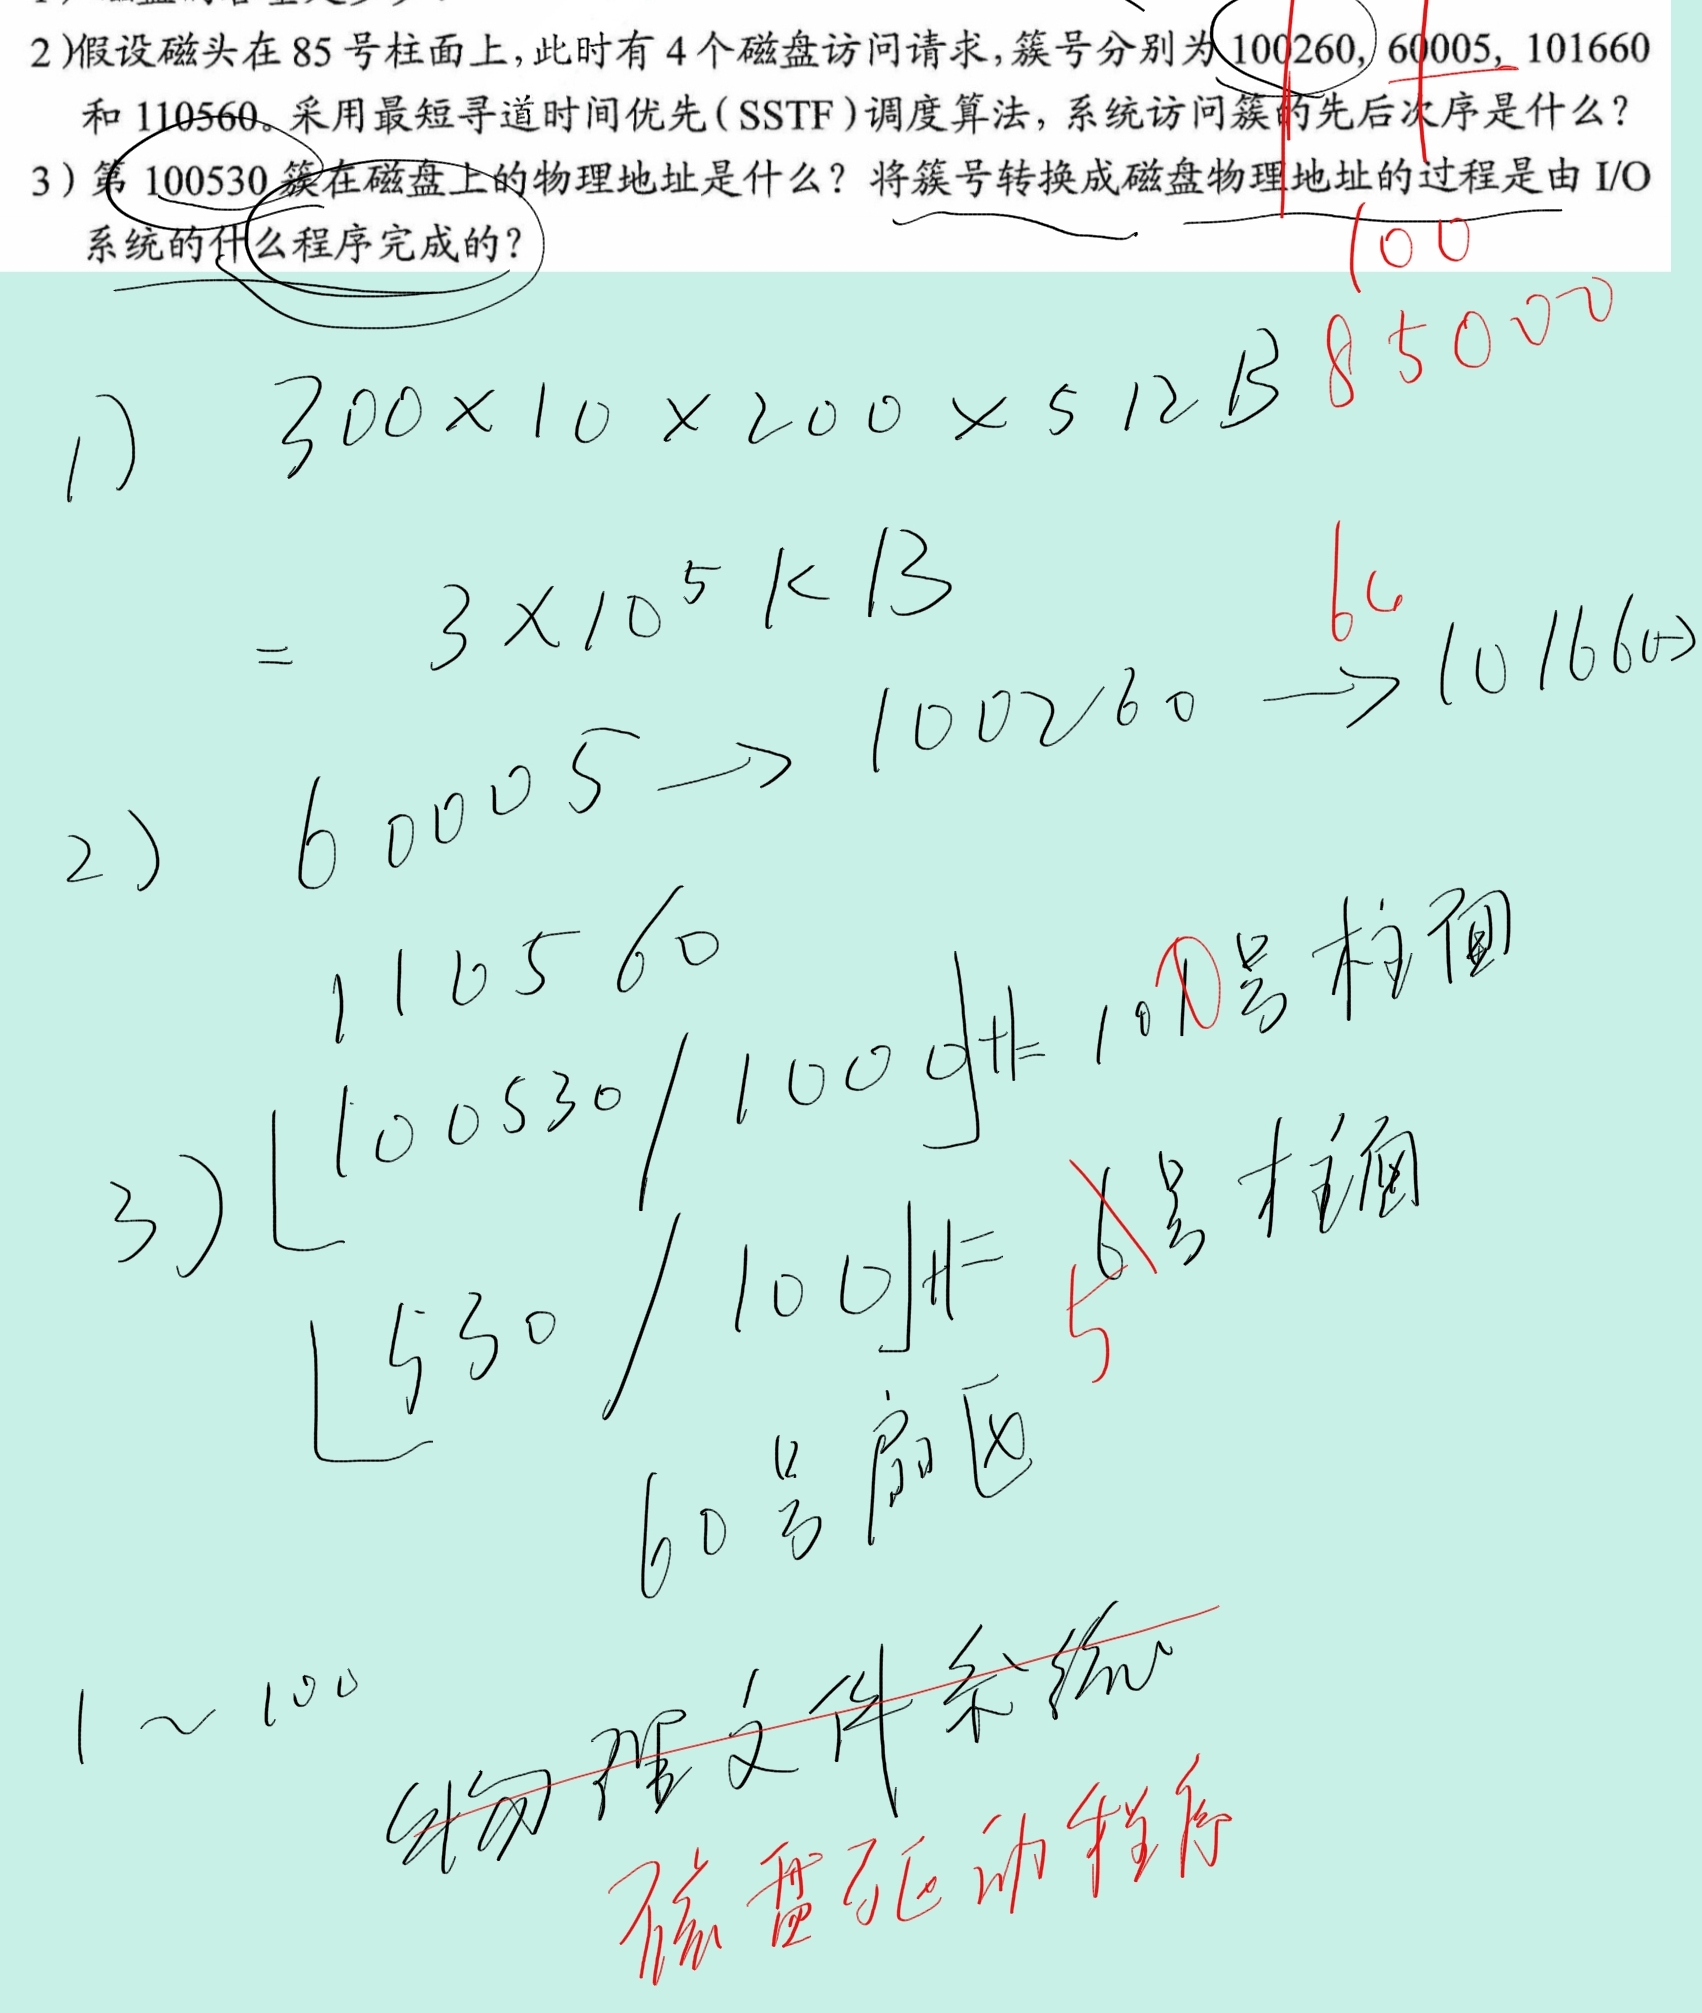 2)假设磁头在 85 号柱面上,此时有 4 个磁盘访问请求,簇号分别为 100260, 60005, 101660
和 110560。采用最短寻道时间优先(SSTF)调度算法,系统访问簇的先后次序是什么?
3)第 100530 簇在磁盘上的物理地址是什么?将簇号转换成磁盘物理地址的过程是由 I/O
系统的什么程序完成的?
100
85000
1) 300×10×200×512B
= 3×10⁵KB
2) 60005→100260→101660→
110560
3) ⌊100530/1000⌋ = 100号柱面
⌊530/100⌋ = 5号柱面
60号扇区
1~100
物理文件系统
磁盘驱动程序